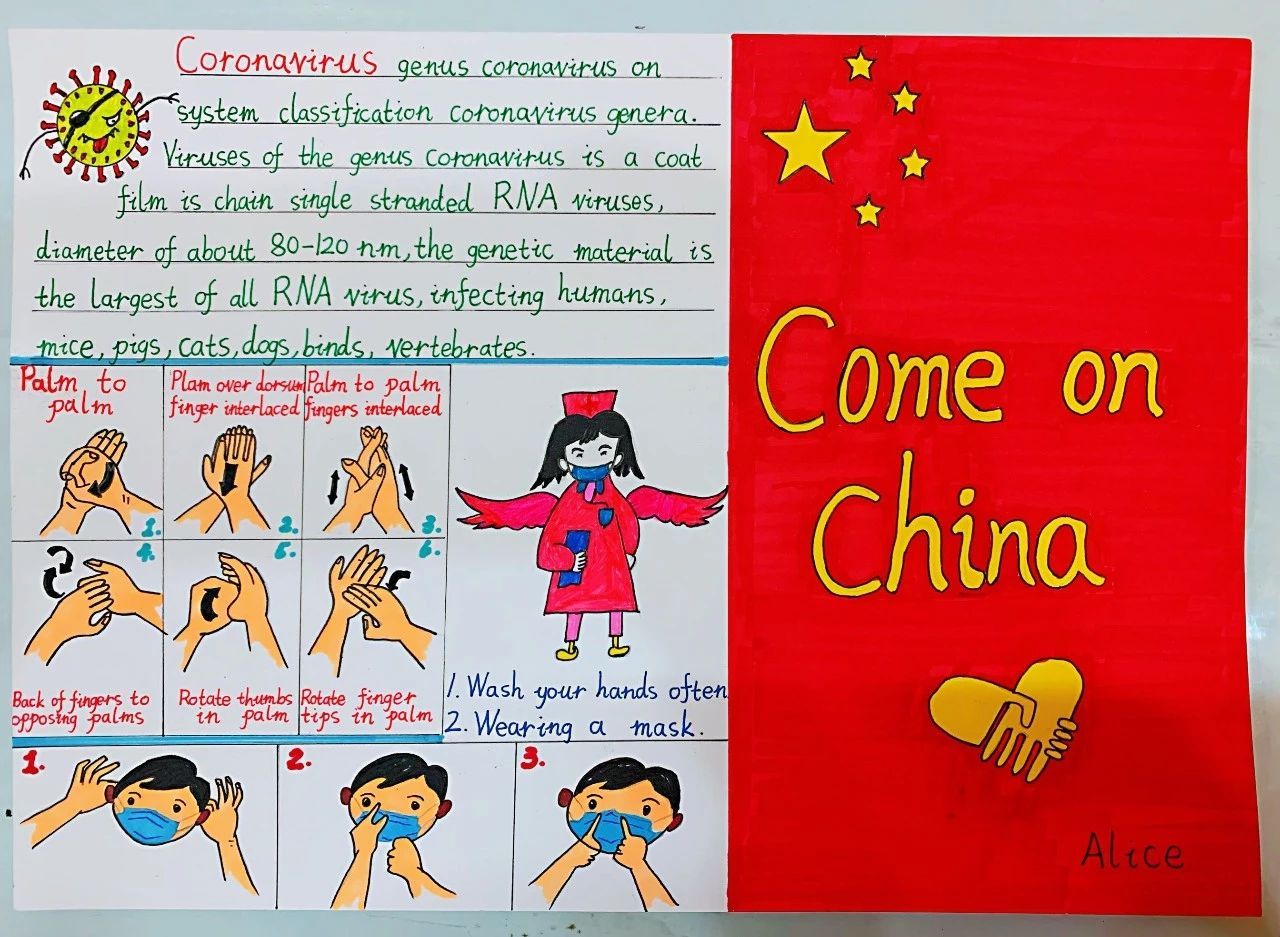 Coronavirus genus coronavirus on
system classification coronavirus genera.
Viruses of the genus coronavirus is a coat
film is chain single stranded RNA viruses,
diameter of about 80-120 nm, the genetic material is
the largest of all RNA virus, infecting humans,
mice, pigs, cats, dogs, binds, vertebrates.
Palm to
palm
1.
Plam over dorsum
finger interlaced
2.
Palm to palm
fingers interlaced
3.
4.
Back of fingers to
opposing palms
5.
Rotate thumbs
in palm
6.
Rotate finger
tips in palm
1. Wash your hands often
2. Wearing a mask.
1.
2.
3.
Come on
China
Alice